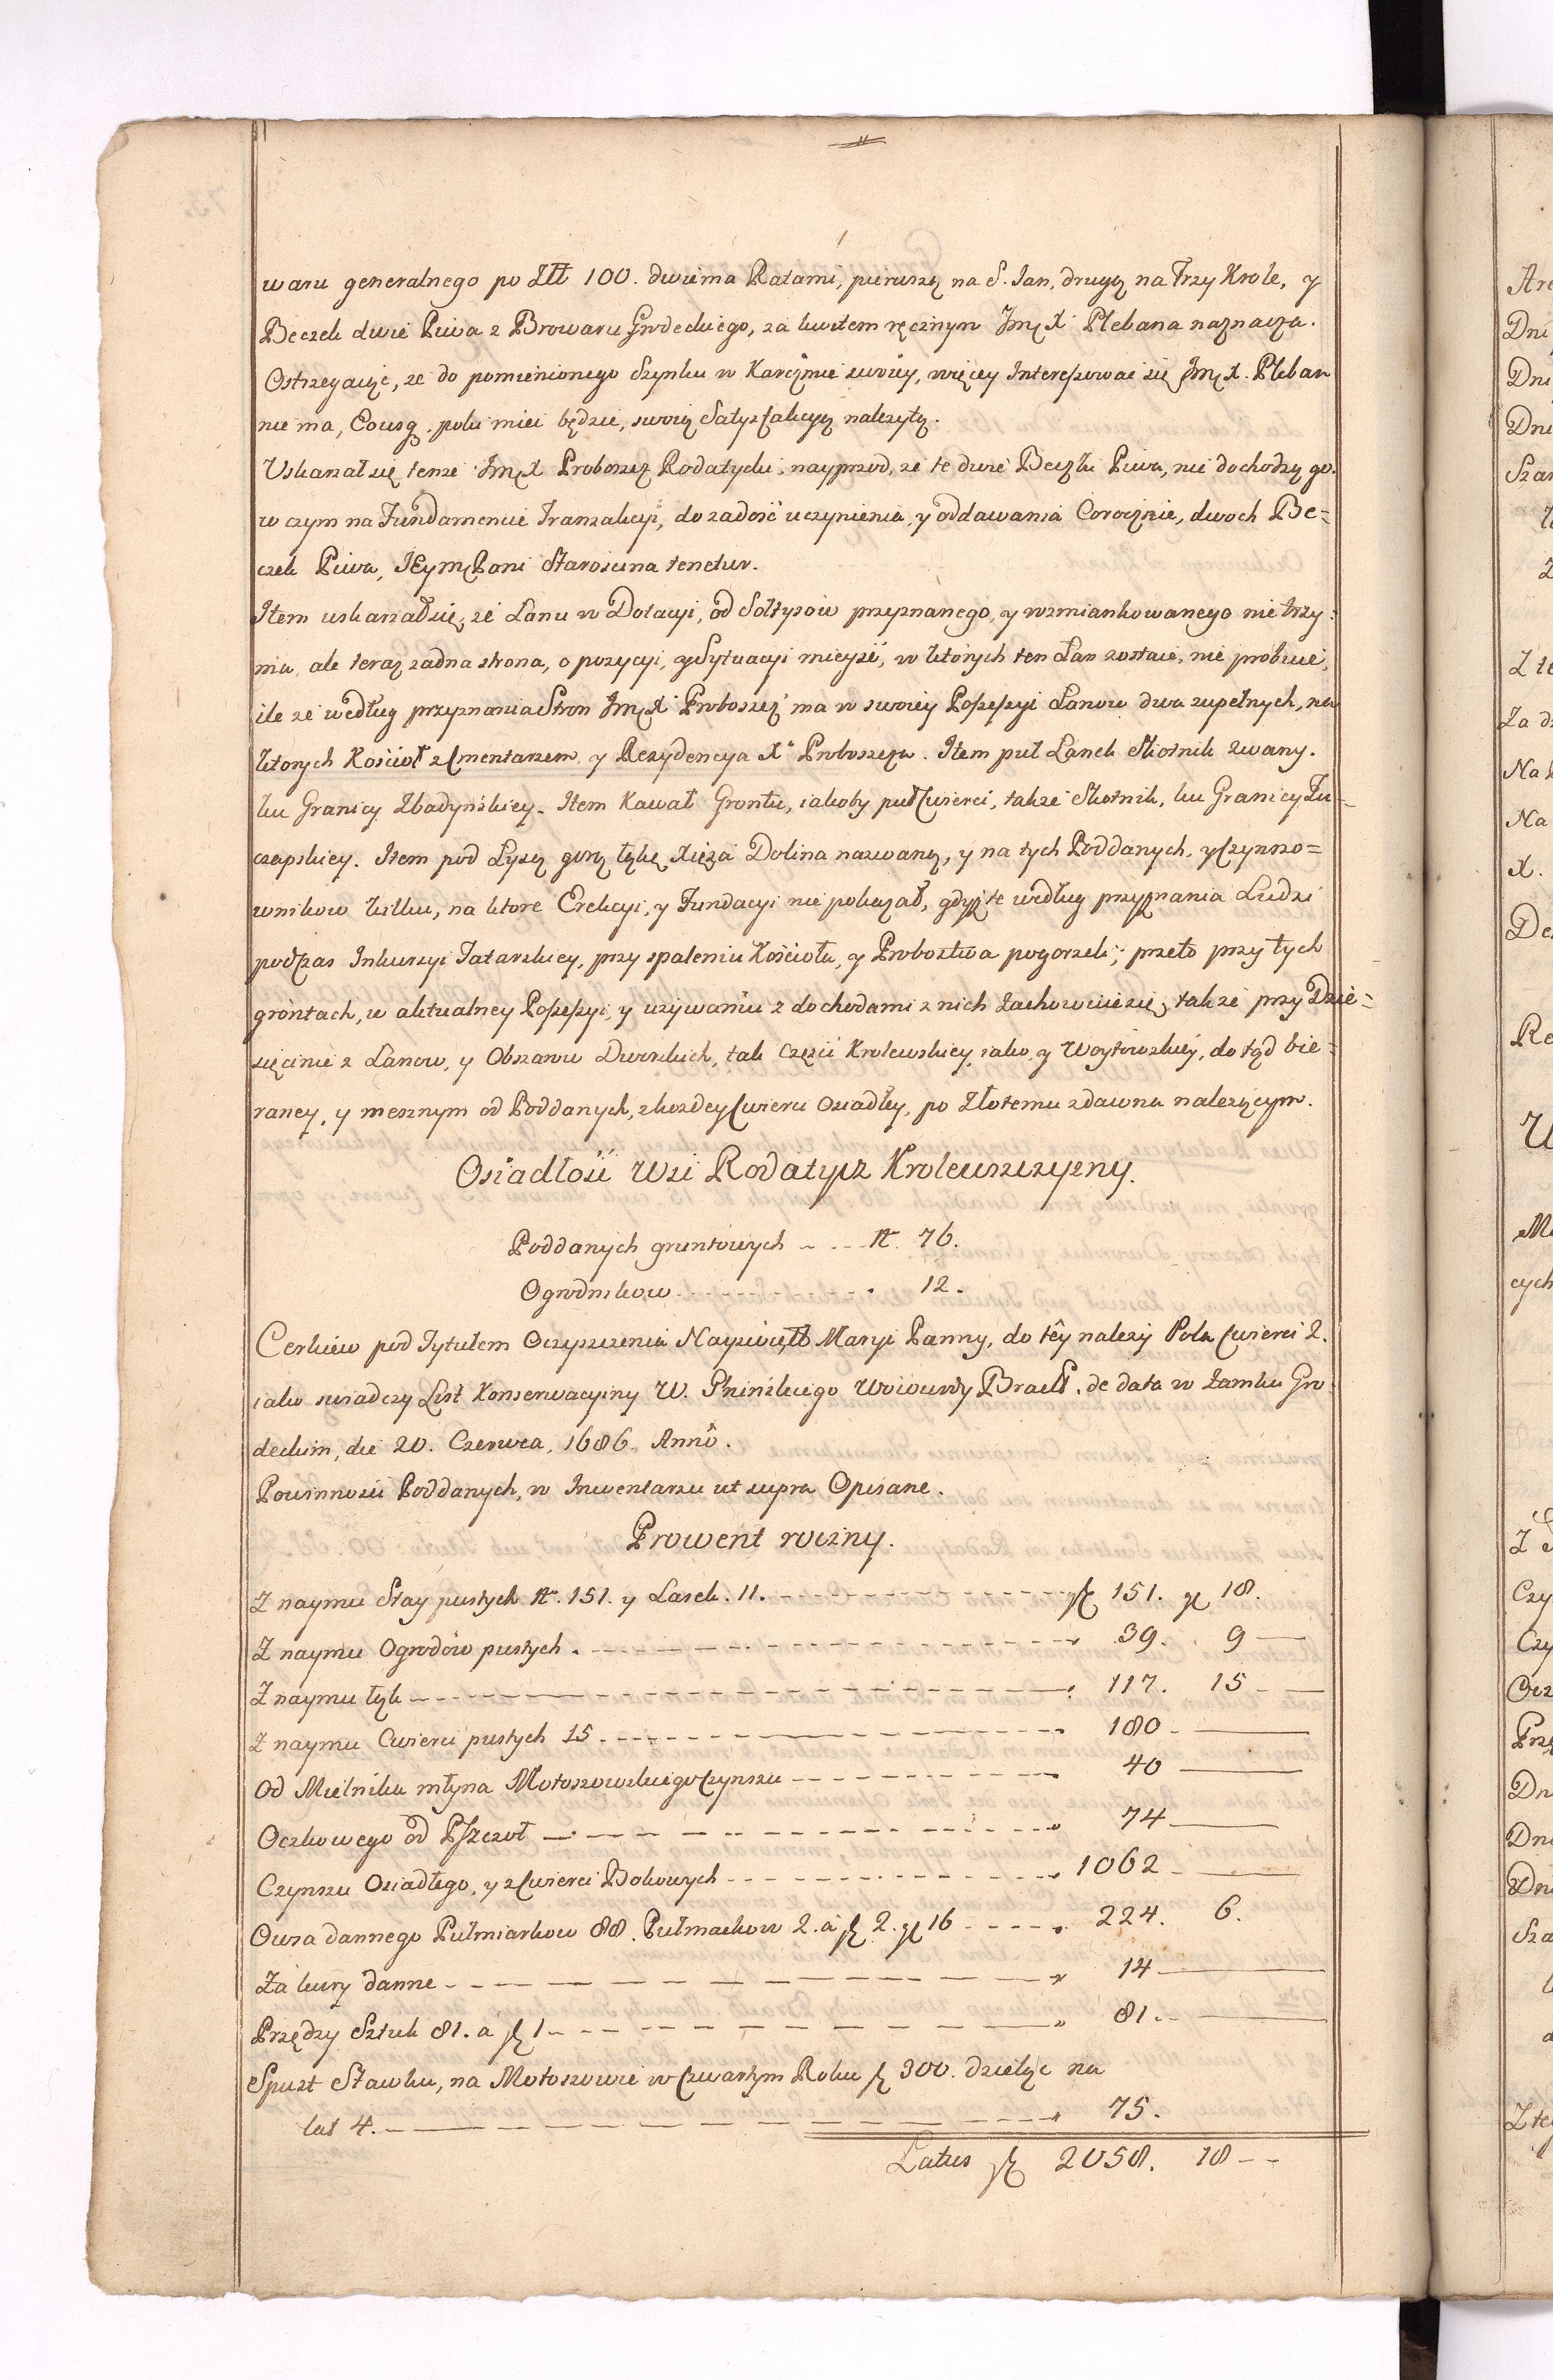 waru generalnego po Złł 100. dwiema Ratami, pierwszą na S. Jan, drugą na Trzy Krole, y
Beczek dwie Piwa z Browaru Grodeckiego, za kwitem ręcznym Jmę X Plebana naznacza.
Ostrzegaiąc, ze do pomienionego Szynku w Karczmie swoiey, więcey Interessować się Jmę X. Pleban
nie ma, Eousq. poki mieć będzie, swoię Satysfakcyą należytą.
Uskarzał się tenze Jmę X Proboszcz Rodatycki, nayprzod, ze te dwie Beczki Piwa, nie dochodzą go.
w czym na Fundamencie Tranzakcyi, do zadość uczynienia, y oddawania Corocznie, dwoch Be=
czek Piwa, JEymę Pani Starościna tenetur.
Item uskarzał się, ze Lanu w Dotacyi, od Sołtysow przyznanego, y wzmiankowanego nie trzy=
ma, ale teraz zadna strona, o pozycyi, y Sytuacyi mieysc, w ktorych ten Łan zostaie, nie probuie,
ile ze według przyznania Stron Jmę X Proboszcz ma w swoiey Possessyi Lanow dwa zupełnych, na
ktorych Kościoł z Cmentarzem, y Rezydencya Xa Proboszcza. Item puł Lanek Skotnik zwany.
ku Granicy Zbadyńskiey. Item Kawał Grontu, iakoby puł Cwierci, takze Skotnik, ku Granicy Łu=
czapskiey. Item pod Lysą gorą łąkę Xięża Dolina nazwaną, y na tych Poddanych, y Czynszo=
wnikow kilku, na ktore Erekcyi, y Fundacyi nie pokazał, gdyż te według przyznania Ludzi
podczas Inkursyi Tatarskiey, przy spaleniu Kościoła, y Probostwa pogorzeli; przeto przy tych
gróntach, w aktualney Possessyi, y uzywaniu z dochodami z nich Zachowuie się, takze przy Dzie=
sięcinie z Lanow, y Obszarow Dworskich, tak Części Krolewskiey, iako y Woytowskiey, do tąd bie=
raney, y mesznym od Poddanych, z kozdey Cwierci Osiadłey, po Złotemu zdawna nalezącym.
Osiadłość Wsi Rodatycz Krolewszczyzny.
Poddanych gruntowych - - - - N. 76.
Ogrodnikow - - - - - - - - - - . 12.
Cerkiew pod Tytułem Oczyszczenia Nayświęt: Maryi Panny, do tey nalezy Pola Cwierci 2.
iako swiadczy List Konserwacyiny W. Pninskiego Woiewody Bracł. de data w Zamku Gro=
deckim, die 20. Czerwca, 1686. Anno.
Powinności Poddanych, w Inwentarzu ut supra Opisane.
Prowent roczny.
Z naymu Stay pustych N. 151. y Lasek. 11. - - - - - - zł 151. gr 18.
Z naymu Ogrodów pustych . - - - - - - 39. 9 —
Z naymu łąk - - - - - - 117. 15 - —
Z naymu Cwierci pustych 15 - - - - - - 180 - —
Od Mielnika młyna Mołoszowskiego Czynszu - - - - - - 40 —
Oczkowego od Pszczoł - - - - - - 74 —
Czynszu Osiadłego, y z Cwierci Bokowych - - - - - - 1062 - —
Owsa dannego Pułmiarkow 88. Pułmackow 2. a zł 2. gr 16 - - - - - 224. 6.
Za kury danne - - - - - - 14 —
Przędzy Sztuk 81. a zł 1 - - - - - - 81. - —
Spust Stawku, na Mołoszowie w Czwartym Roku zł 300. dzieląc na
lat 4. - - - - - - 75.
Latus zł 2058. 18 - -